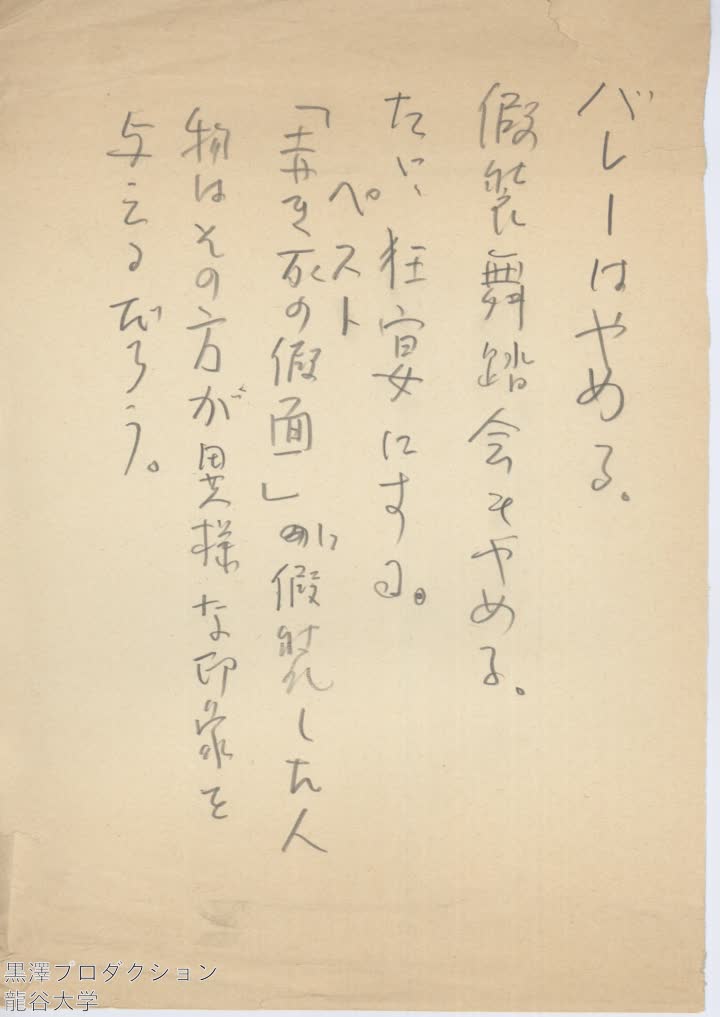 バレーはやめる。
假装舞踏会もやめる。
たゞ狂宴にする。
ペスト
「赤き死の假面」に假装した人
物はその方が異様な印象を
与えるだろう。
黒澤プロダクション
龍谷大学